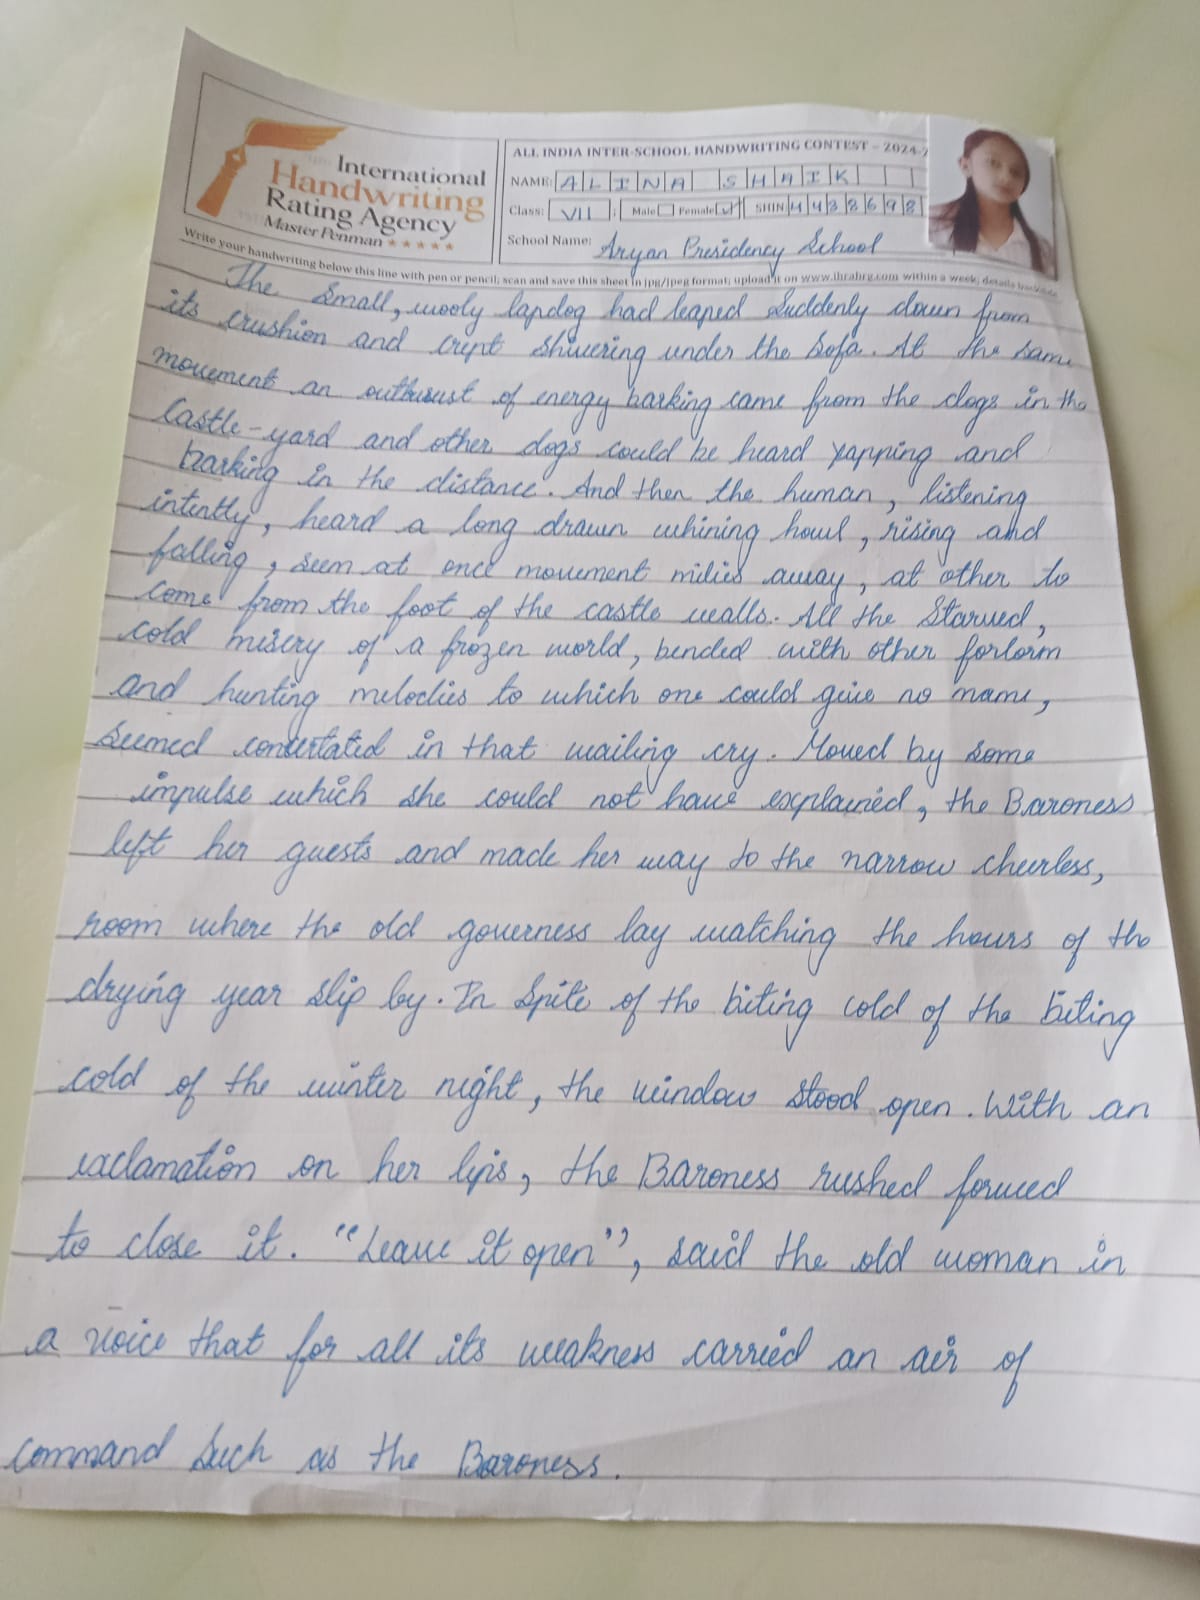 International
Handwriting
Rating Agency
Master Penman ★★★★★
ALL INDIA INTER-SCHOOL HANDWRITING CONTEST – 2024-2
NAME: ALINA SHAIK
Class: VII Male Female SHIN 4438698
School Name: Aryan Presidency School
Write your handwriting below this line with pen or pencil; scan and save this sheet in jpg/jpeg format; upload it on www.ihrahrg.com within a week; details
The small, wooly lapdog had leaped suddenly down from
its crushion and crept shivering under the sofa. At the same
movement an outburst of energy barking came from the dogs in the
castle-yard and other dogs could be heard yapping and
barking in the distance. And then the human, listening
intently, heard a long drawn whining howl, rising and
falling, seem at once movement milies away, at other to
come from the foot of the castle walls. All the starved,
cold misery of a frozen world, bended with other forlorm
and hunting melodies to which one could give no name,
seemed concertated in that wailing cry. Moved by some
impulse which she could not have explained, the Baroness
left her guests and made her way to the narrow cheerless,
room where the old governess lay watching the hours of the
drying year slip by. In spite of the biting cold of the biting
cold of the winter night, the window stood open. With an
exclamation on her lips, the Baroness rushed forwed
to close it. "Leave it open", said the old woman in
a voice that for all its weakness carried an air of
command such as the Baroness.